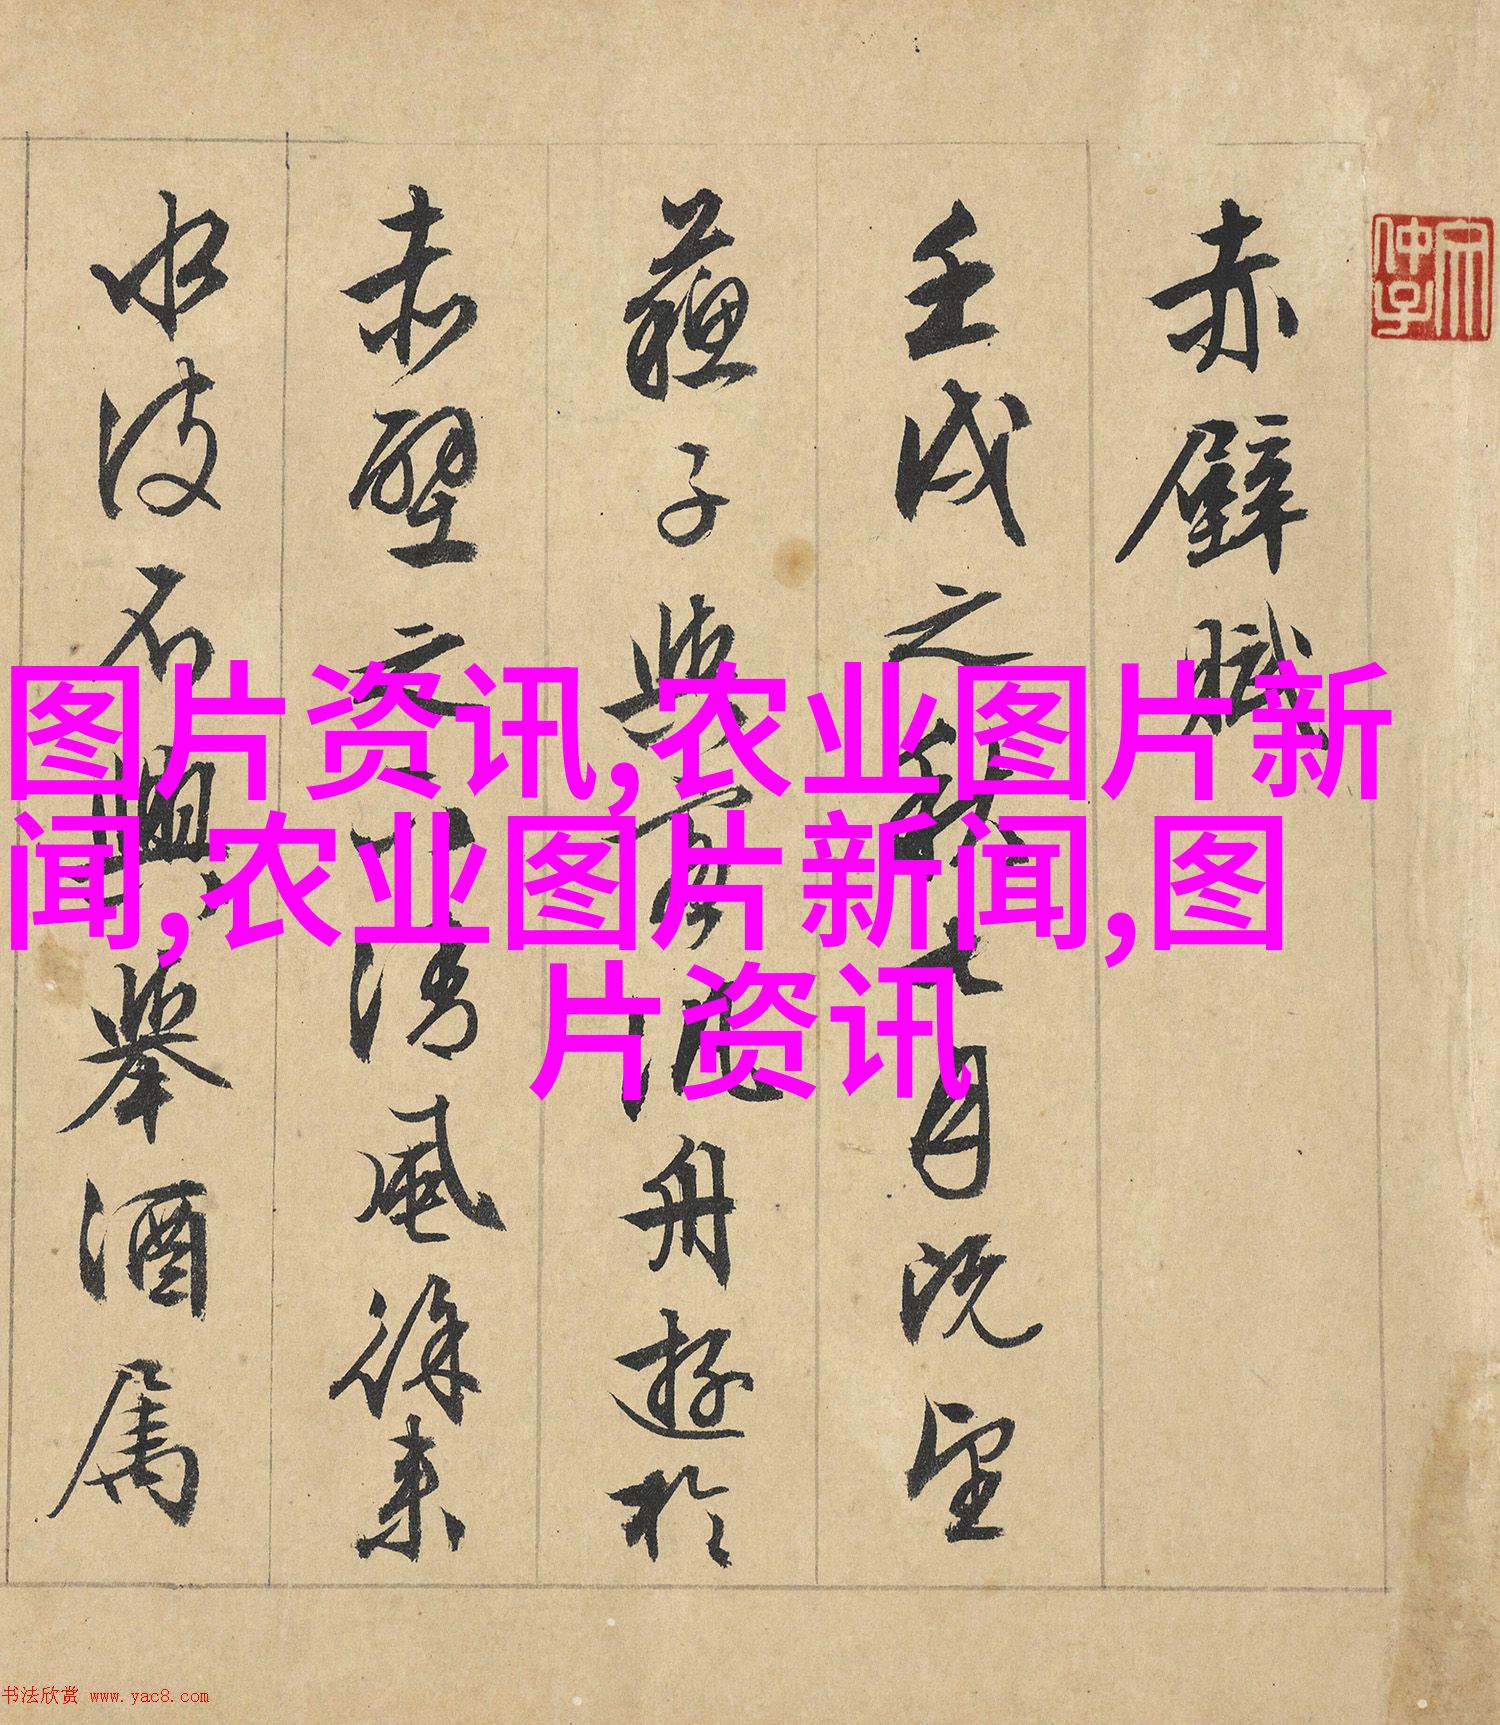 赤壁賦
壬戌之秋七月既望
蘇子與客泛舟遊於
赤壁之下清風徐来
水波不興舉酒属
图片资讯,农业图片新
闻,农业图片新闻,图
片资讯
书法欣赏 www.yac8.com